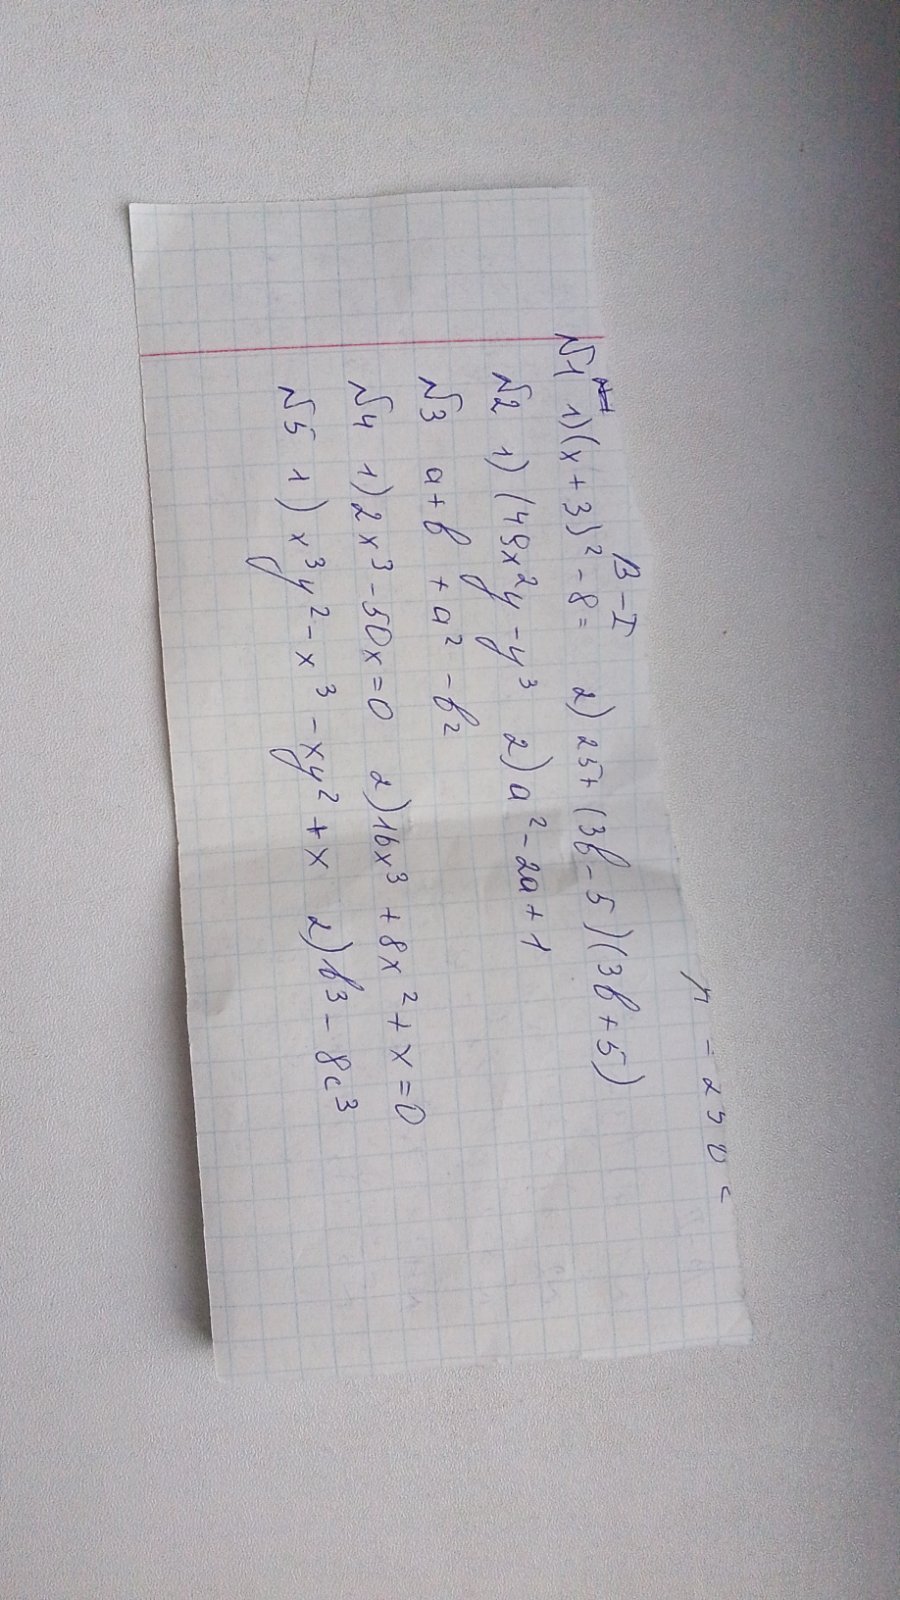 В-I
№1 1)(x+3)²-8= 2) 25+(3b-5)(3b+5)
№2 1) (49x²y-y³ 2) a²-2a+1
№3 a+b+a²-b²
№4 1) 2x³-50x=0 2) 16x³+8x²+x=0
№5 1) x³y²-x³-xy²+x 2) b³-8c³